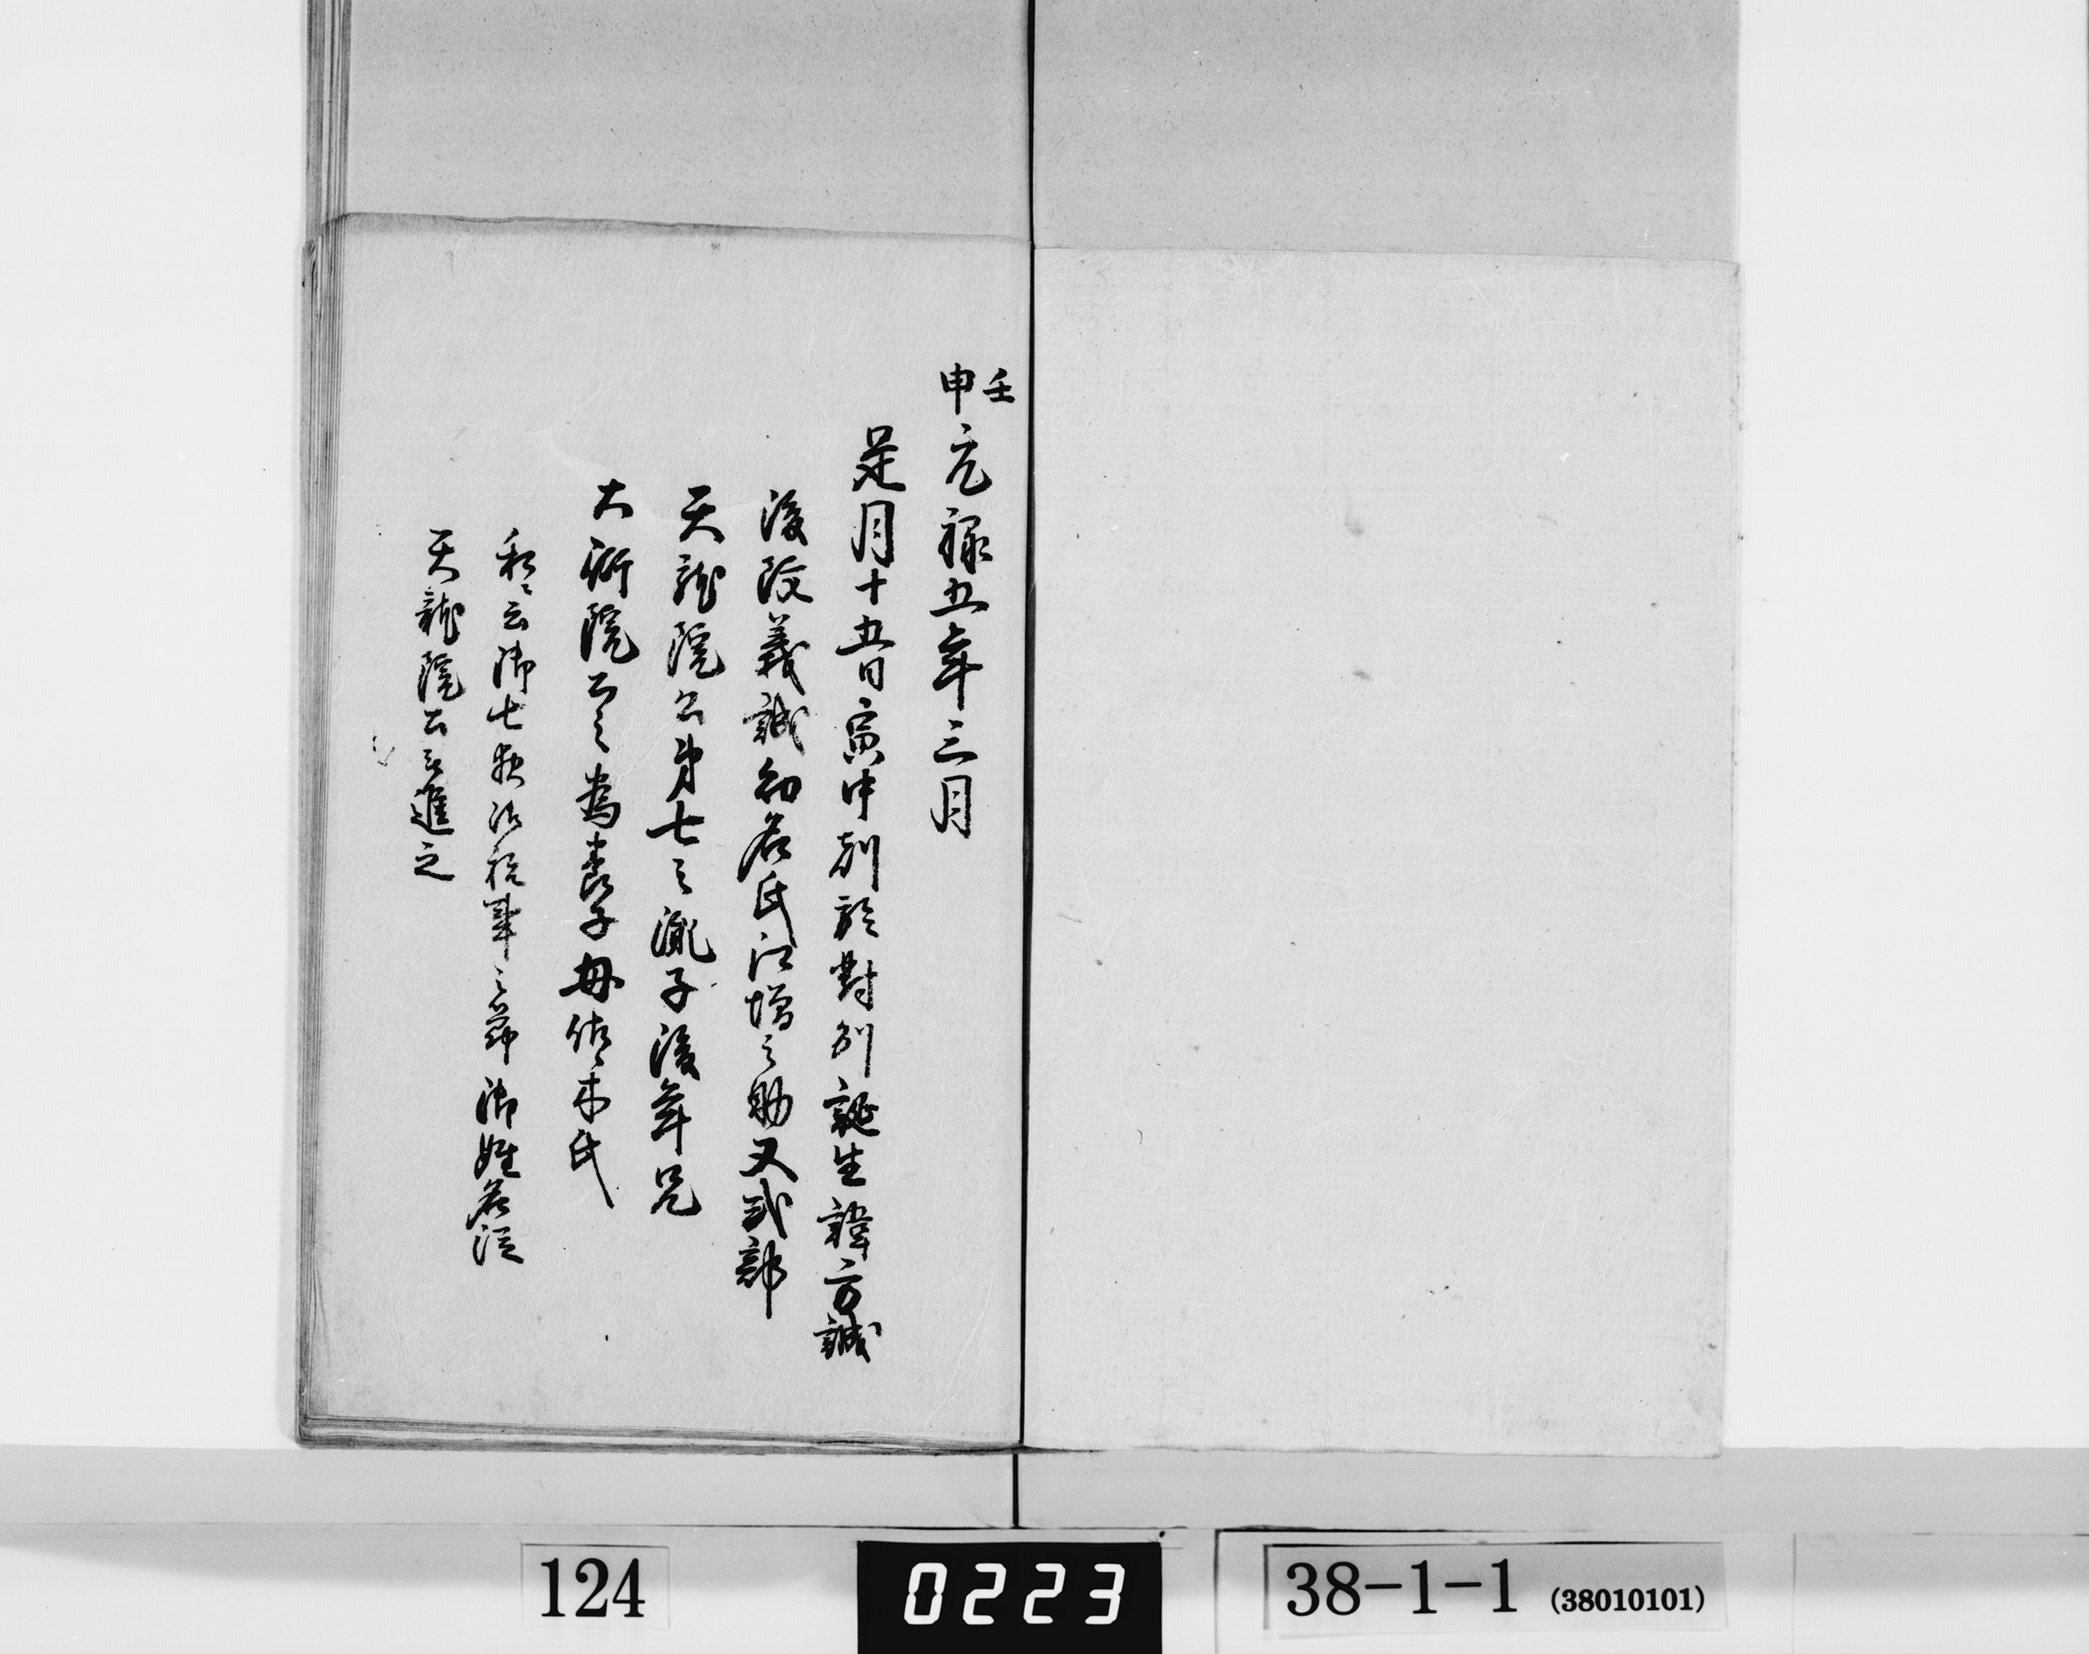 壬申元禄五年三月
是月十五日寅中刻於對州誕生諱方誠
後改義誠初名氏江増之助又式部
天龍院公第七之胤子後年兄
大衍院公之為養子母佐々木氏
私ニ云御七夜御祝事之節御姓名従
天龍院公被進之
124
0223
38-1-1 (38010101)